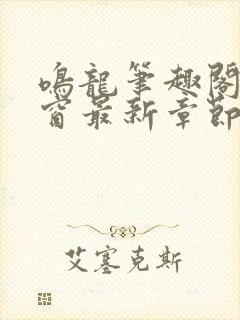 鳴龍筆趣閣
窗最新章節
艾塞克斯